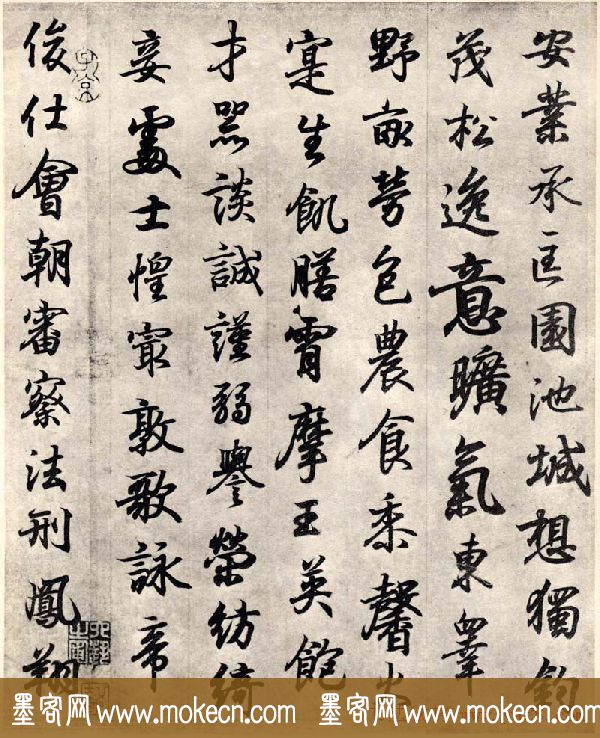 安業承匡園池城想獨釣
茂松逸意曠氣東皋
野畝芳包農食黍馨
寔生飢膳霄摩王英飽
才器談誠謹弱譽榮紡綺
妾處士惶寂敦歌詠帝
俊仕會朝審察法刑鳳翔
墨客网 www.mokecn.com 墨客网 www.mokecn.com